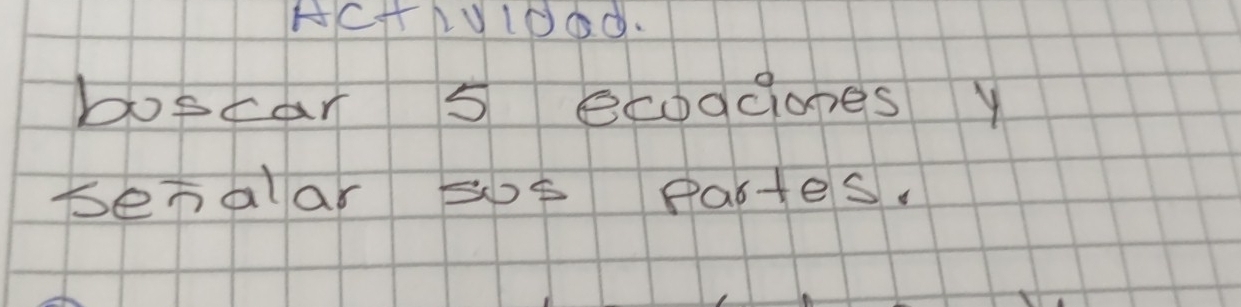 Actividad.
boscar 5 ecoaciones y
señalar sos partes.